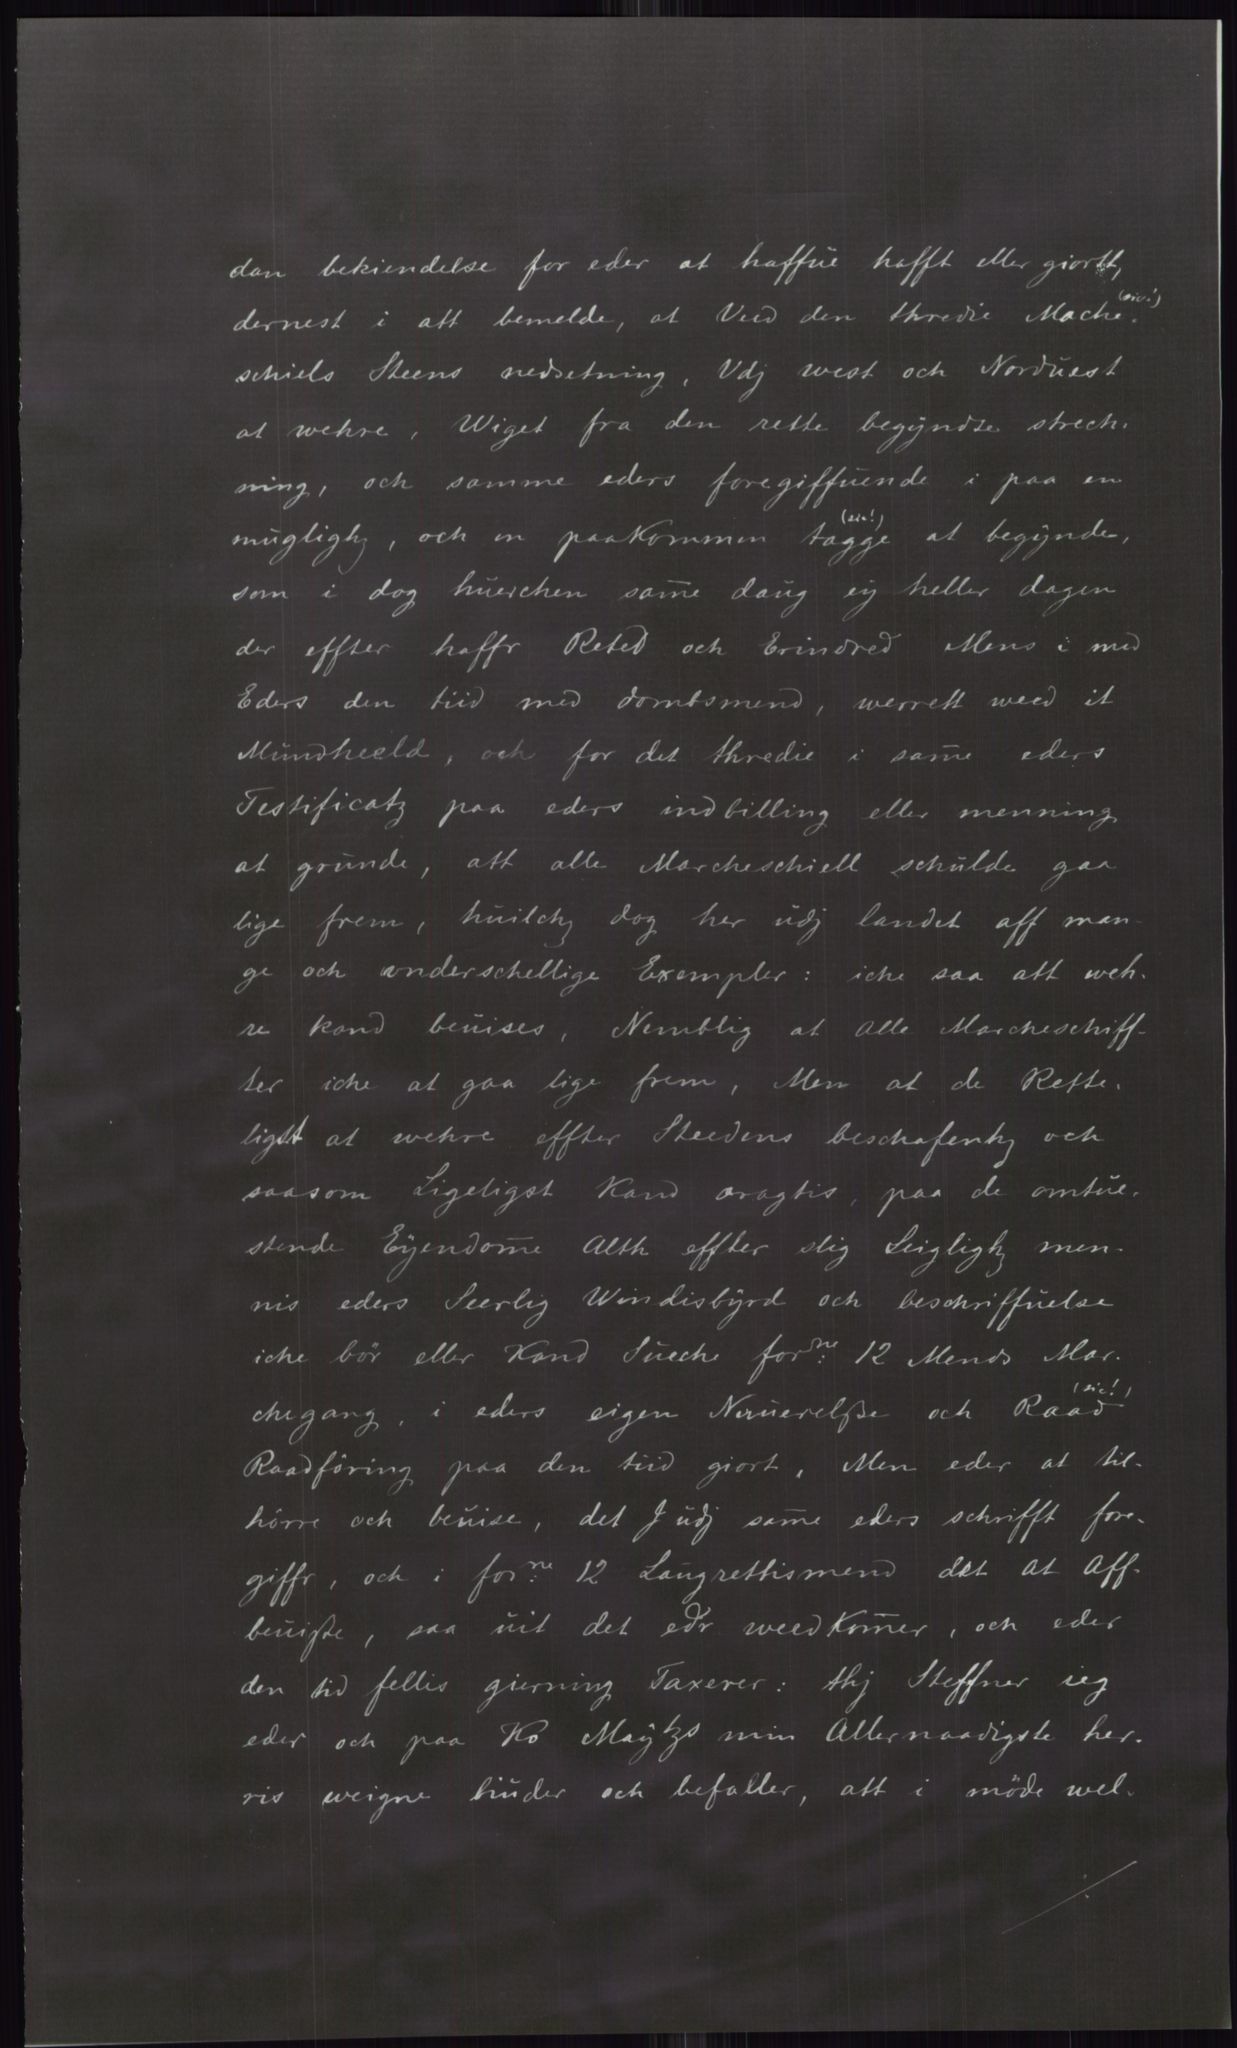 dan bekiendelse for eder at haffue hafft eller giortt,
dernest i att bemelde, at Ved den thredie Mache- (sic!)
schiels Steens nedsetning, Vdj west och Norduest
at wehre, Wiget fra den rette begÿndte strech-
ning, och samme eders foregiffuende i paa en
mugligh, och en paakommen tagge (sic!) at begÿnde,
som i dog huerchen sam̄e daug eÿ heller dagen
der effter haffr Reted och Erindred Mens i med
Eders den tiid med dombsmend, werrett weed it
Mundheeld, och for det thredie i sam̄e eders
Testificatz paa eders indbilling eller menning
at grunde, att alle Marcheschiell schulde gaa
lige frem, huilchz dog her udj landet aff man-
ge och vnderschellige Exempler: iche saa att weh-
re kand beuises, Nemblig at alle Marcheschiff-
ter iche at gaa lige frem, Men at de Rette-
ligst at wehre effter Steedens beschafenhz och
saasom Ligeligst Kand aragtis, paa de omtue-
stende Eÿendom̄e Alth effter slig Leiglighz men-
nis eders Seerlig Windisbÿrd och beschriffuelse
iche bör eller Kand Sueche forne: 12 Mends Mar-
chegang, i eders eigen Neruerelße och Raad (sic!)
Raadföring paa den tiid giort, Men eder at til-
hörre och beuise, det J udj sam̄e eders schrifft fore-
giffr, och i forne: 12 Laugrettismend det at Aff-
beuißte, saa uit det edr weedkom̄er, och eder
den tid fellis gierning Taxerer: thj Steffner ieg
eder och paa Ko Maÿtzs min Allernaadigste her-
ris weigne biuder och befaller, att i möde wel-